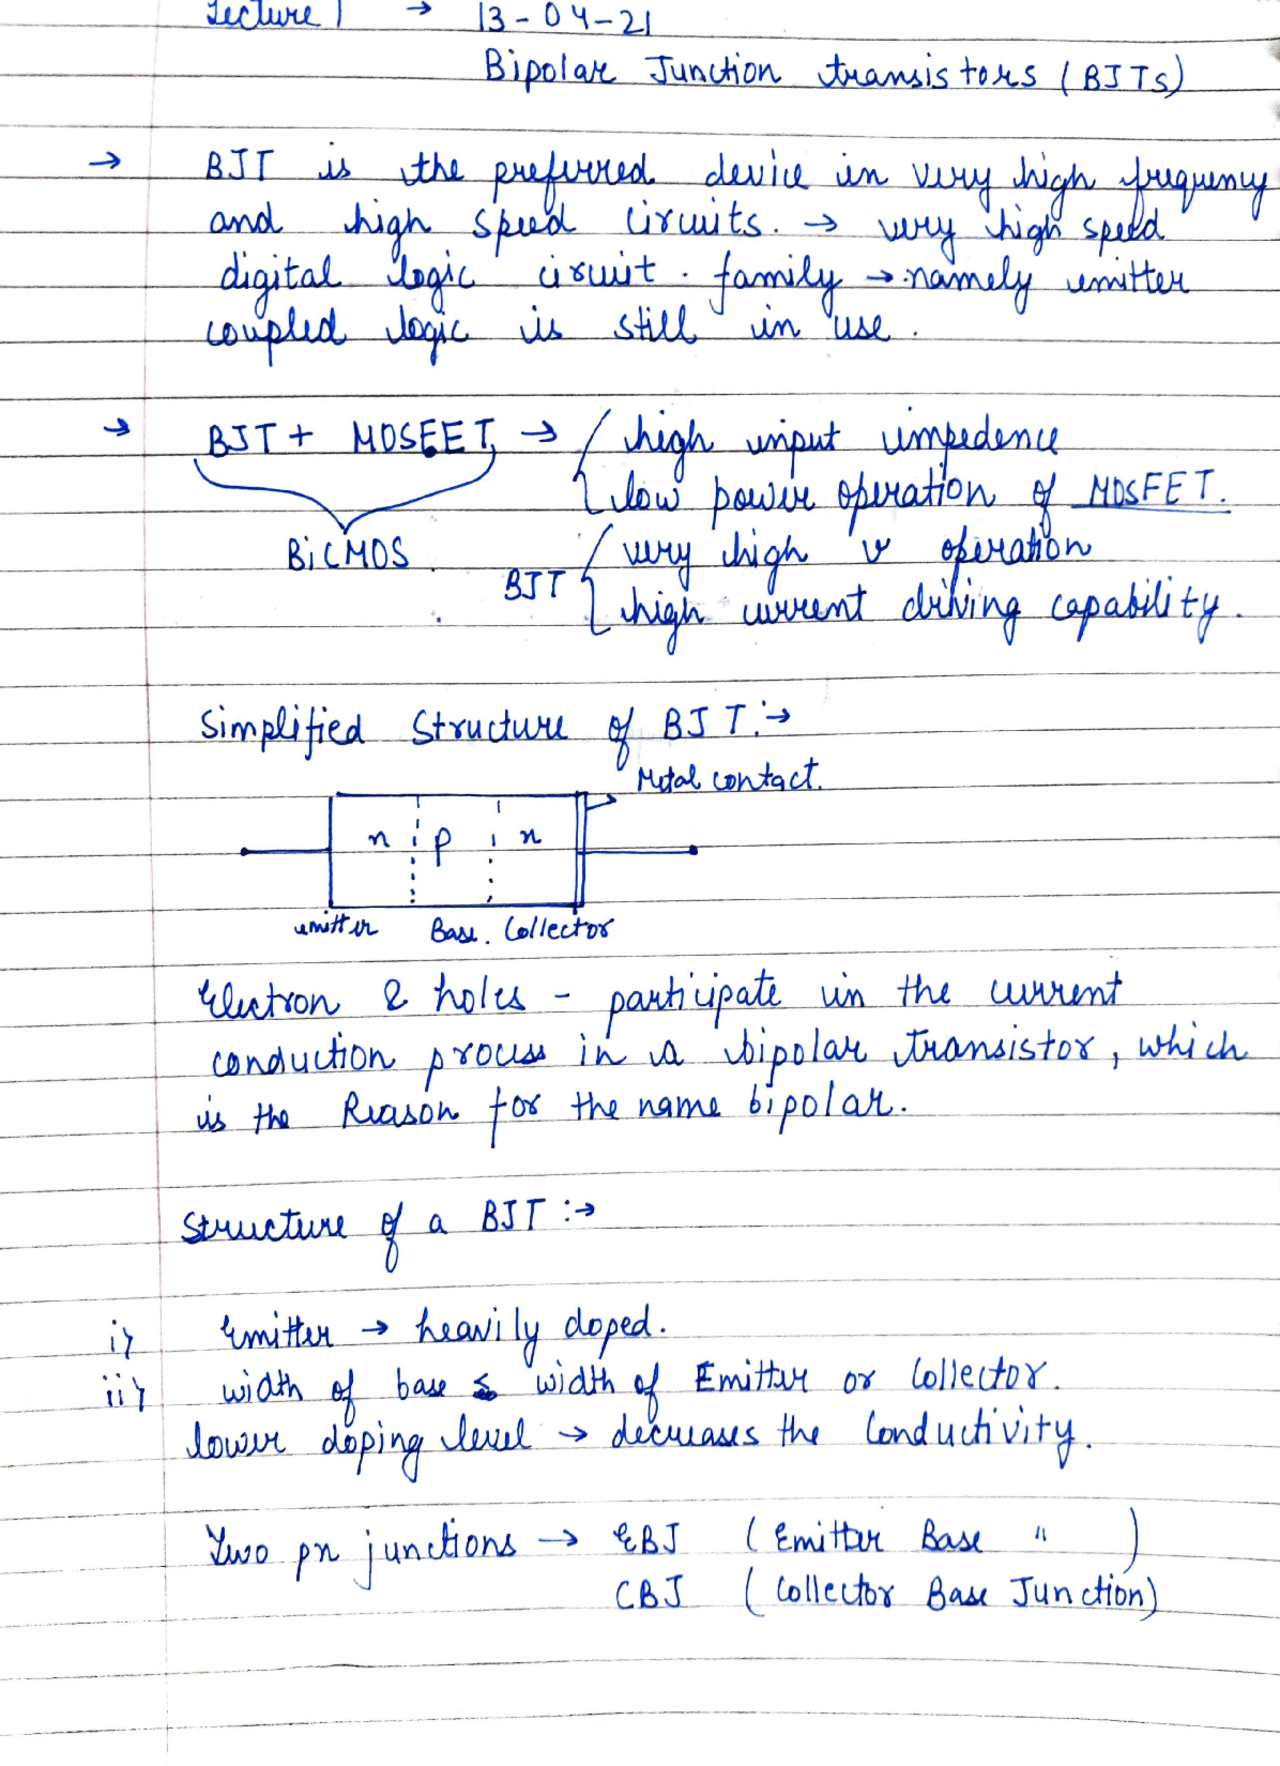 Lecture 1 → 13-04-21
Bipolar Junction transistors (BJTs)
→ BJT is the preferred device in very high frequency
and high speed circuits. → very high speed
digital logic circuit. family → namely emitter
coupled logic is still in use.
→ BJT + MOSFET → { high input impedence
low power operation of MOSFET.
BiCMOS.
BJT { very high ν operation
high current driving capability.
Simplified Structure of BJT :→
Metal contact.
n p n
emitter Base. Collector
Electron & holes - participate in the current
conduction process in a bipolar transistor, which
is the Reason for the name bipolar.
Structure of a BJT :→
i) Emitter → heavily doped.
ii) width of base width of Emitter or Collector.
lower doping level → decreases the Conductivity.
Two pn junctions → EBJ (Emitter Base " )
CBJ (Collector Base Junction)